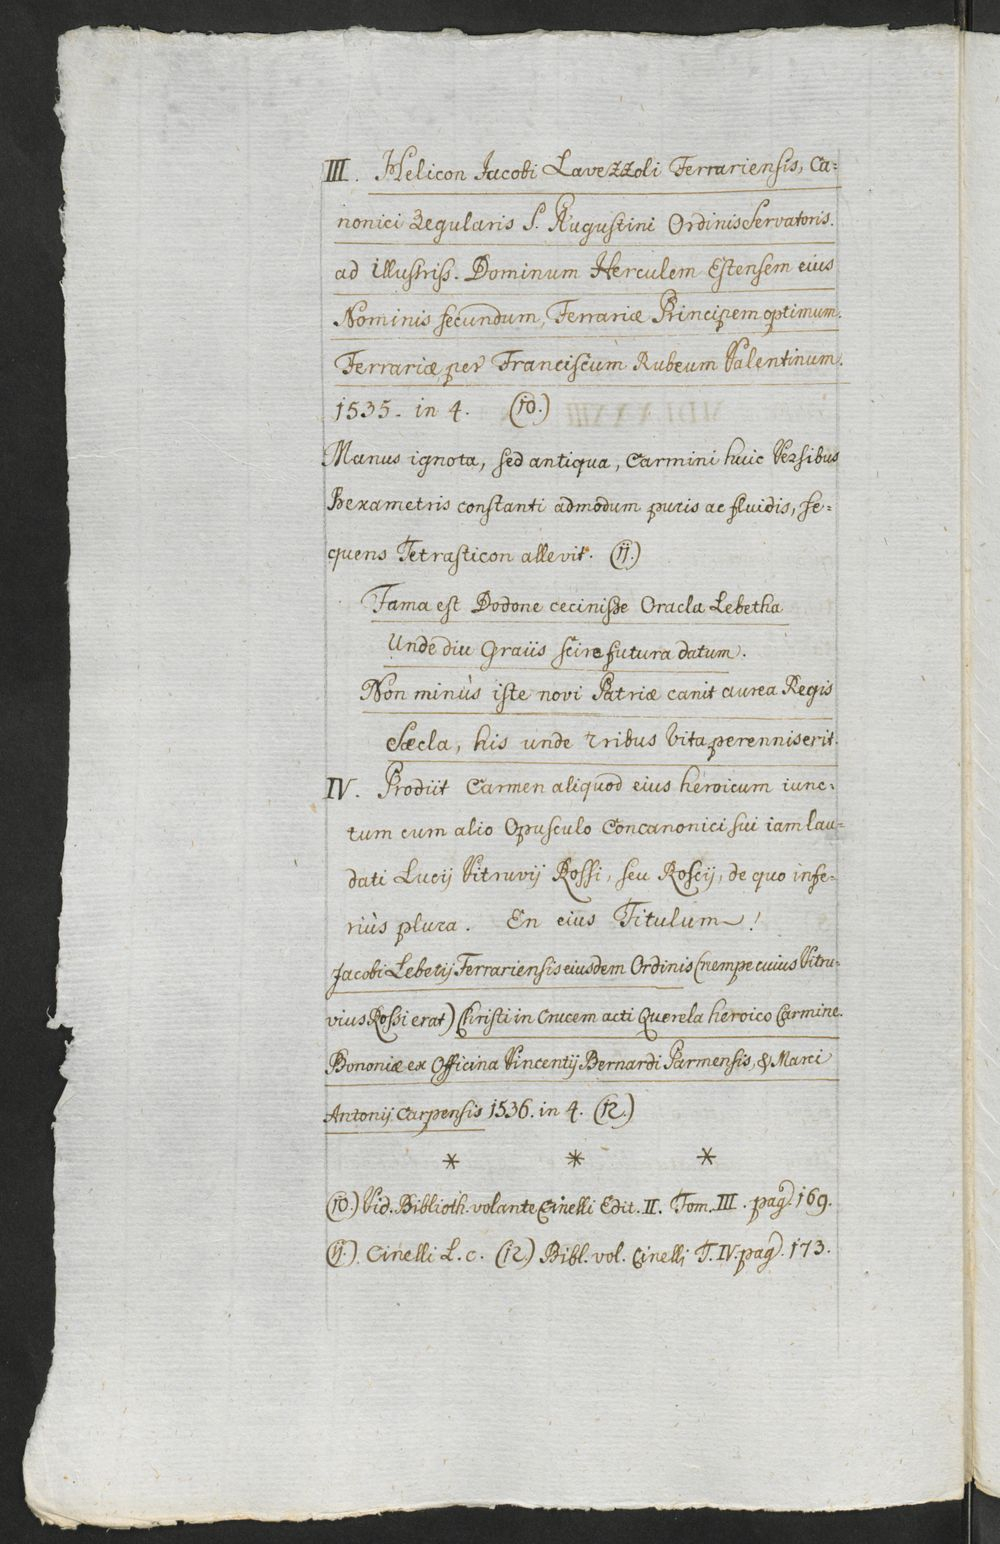 III. Helicon Jacobi Lavezzoli Ferrariensis, Ca=
nonici Regularis S. Augustini Ordinis Servatoris.
ad illustriss. Dominum Herculem Estensem eius
Nominis secundum, Ferrariæ Principem optimum.
Ferrariæ, per Franciscum Rubeum Valentinum.
1535. in 4. (10.)
Manus ignota, sed antiqua, Carmini huic Versibus
hexametris constanti admodum puris ac fluidis, se=
quens Tetrasticon allevit. (11.)
Fama est Dodone cecinisse Oracla Lebetha
Unde diu Graiis scire futura datum.
Non minùs iste novi Patriæ canit aurea Regis
Sæcla, his unde tribus Vita perennis erit.
IV. Prodiit Carmen aliquod eius héroicum iunc=
tum cum alio Opusculo Concanonici sui iam lau=
dati Lucij Vitruvij Rossi, seu Roscij, de quo infe=
riùs plura. En eius Titulum!
Jacobi Lebetij Ferrariensis eiusdem Ordinis (nempe cuius Vitru=
vius Rossi erat) Christi in Crucem acti Querela heroico Carmine.
Bononiæ ex Officina Vincentij Bernardi Parmensis, & Marci
Antonij Carpensis 1536. in 4. (12.)
* * *
(10.) Vid. Biblioth. volante Cinelli Edit. II. Tom. III. pag. 169.
(11.) Cinelli L. c. (12.) Bibl. vol. Cinelli T. IV. pag. 173.